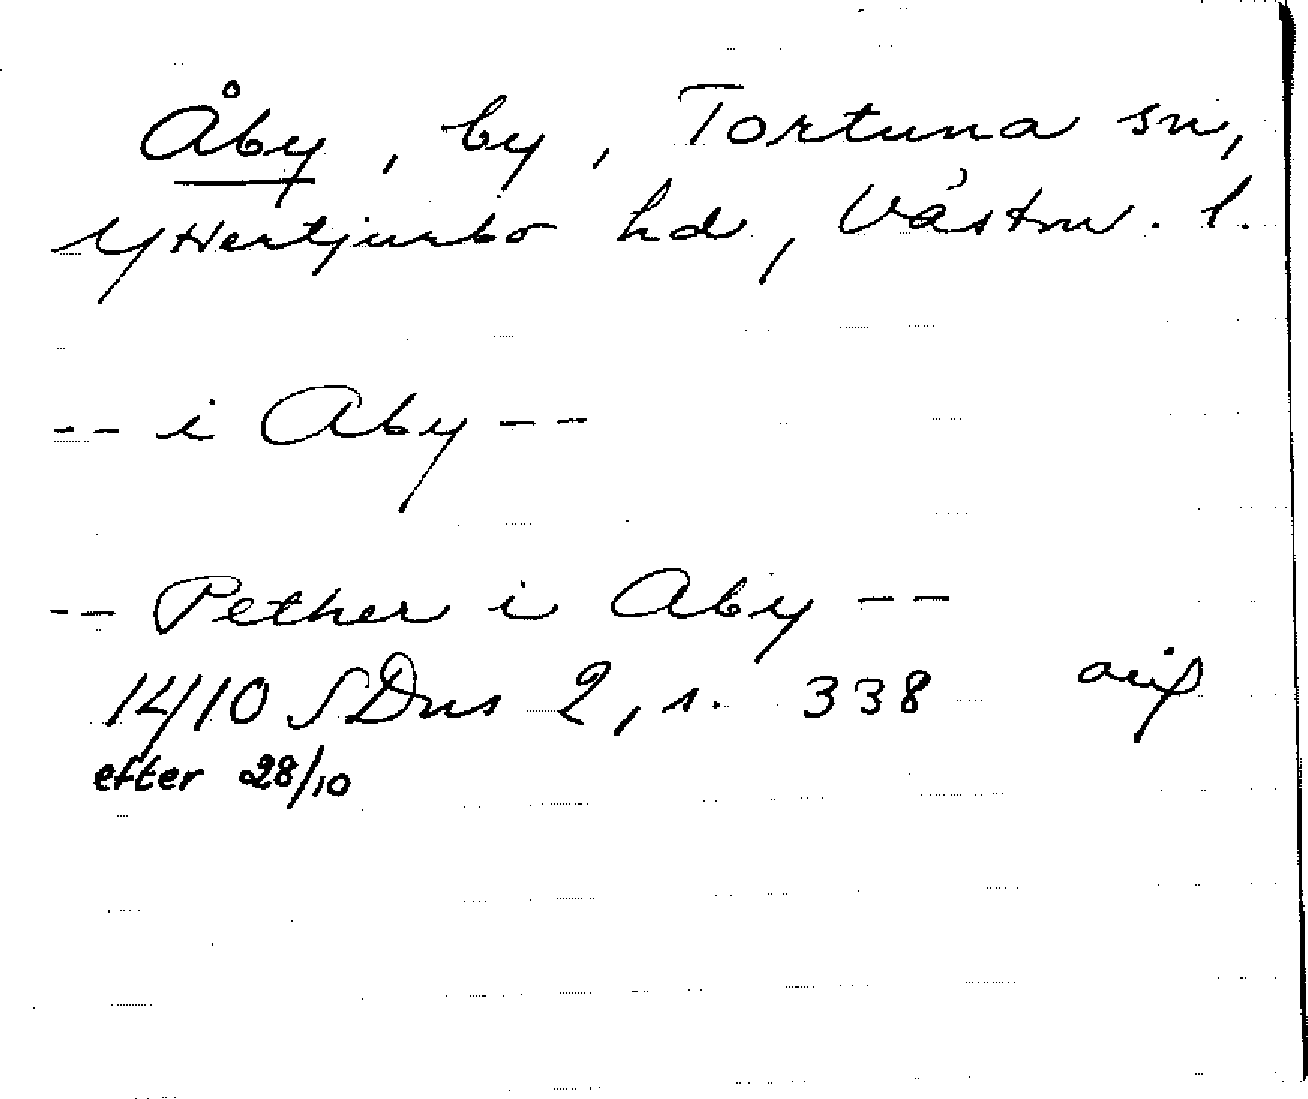 Åby, by, Tortuna sn,
Yttertjurbo hd, Västm. l.
-- i Aby --
-- Pether i Aby --
1410 SDns 2, s. 338
efter 28/10